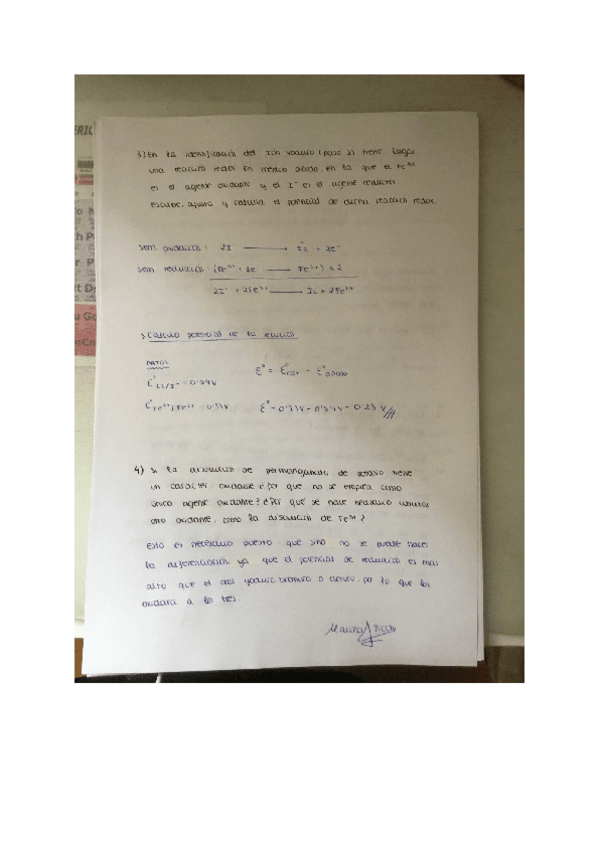 3) En la identificación del ión yoduro (paso 2) tiene lugar
una reacción redox en medio ácido, en la que el Fe³⁺
es el agente oxidante y el I⁻ es el agente reductor.
Escribe, ajusta y calcula el potencial de dicha reacción redox.
semi oxidación: 2I⁻ → I₂ + 2e⁻
semi reducción (Fe³⁺ + 1e → Fe²⁺) x 2
2I⁻ + 2Fe³⁺ → I₂ + 2Fe²⁺
Cálculo potencial de la reacción
DATOS
E° = E°
E° I₂/I⁻ = 0'54V
E° Fe³⁺/Fe²⁺ = 0'77V E° = 0'77V - 0'54V = 0'23 V
4) Si la disolución de permanganato de potasio tiene
un carácter oxidante ¿por qué no se emplea como
único agente oxidante? ¿Por qué se hace necesario utilizar
otro oxidante, como la disolución de Fe³⁺?
Esto es necesario puesto que sino no se puede hacer
la diferenciación ya que el potencial de reducción es más
alto que el del yoduro, bromuro o cloruro, por lo que los
oxidará a los tres.